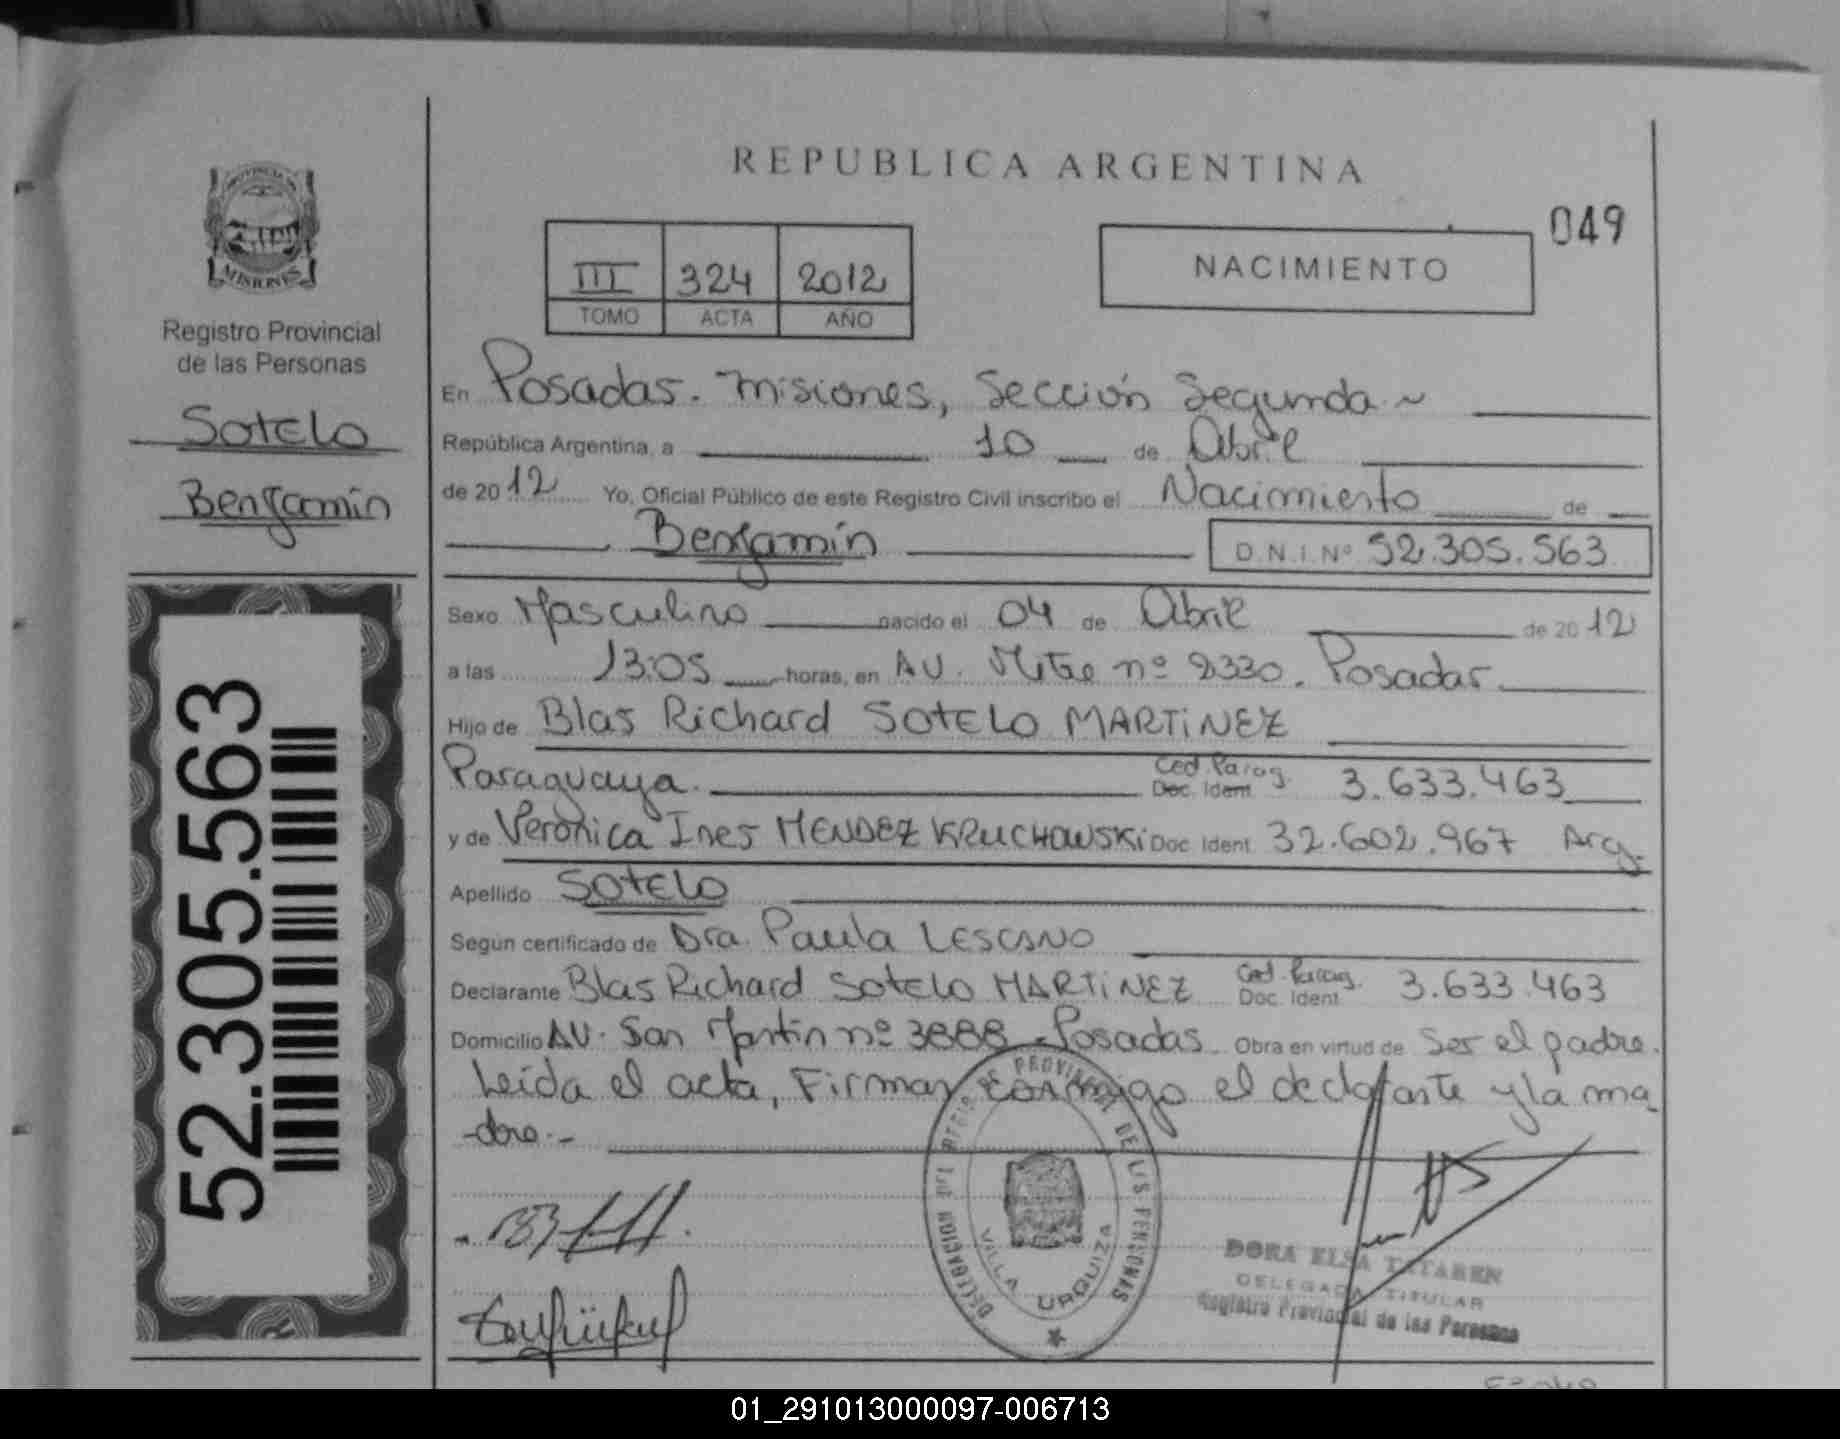 REPUBLICA ARGENTINA
049
III 324 2012
TOMO ACTA AÑO
NACIMIENTO
PROVINCIA DE
MISIONES
Registro Provincial
de las Personas
Sotelo
Benjamín
52.305.563
En Posadas. Misiones, Sección Segunda ~
República Argentina, a 10 de Abril
de 2012 Yo, Oficial Público de este Registro Civil inscribo el Nacimiento de
Benjamín D.N.I. Nº 52.305.563
Sexo Masculino nacido el 04 de Abril de 2012
a las 13:05 horas, en AV. Mitre nº 2330. Posadas
Hijo de Blas Richard SOTELO MARTINEZ
Paraguaya. Ced. Parag. Doc. Ident. 3.633.463
y de Verónica Ines MENDEZ KRUCHOWSKI Doc. Ident. 32.602.967 Arg.
Apellido SOTELO
Según certificado de Dra. Paula LESCANO
Declarante Blas Richard SOTELO MARTINEZ Ced. Parag. Doc. Ident. 3.633.463
Domicilio AV. San Martín nº 3888 - Posadas. Obra en virtud de Ser el padre.
Leída el acta, Firman conmigo el declarante y la ma
-dre.-
DELEGACION DEL REGTO DE PROVINCIAL DE LAS PERSONAS
VILLA URQUIZA
DORA ELSA TATAREN
DELEGADA TITULAR
Registro Provincial de las Personas
01_291013000097-006713